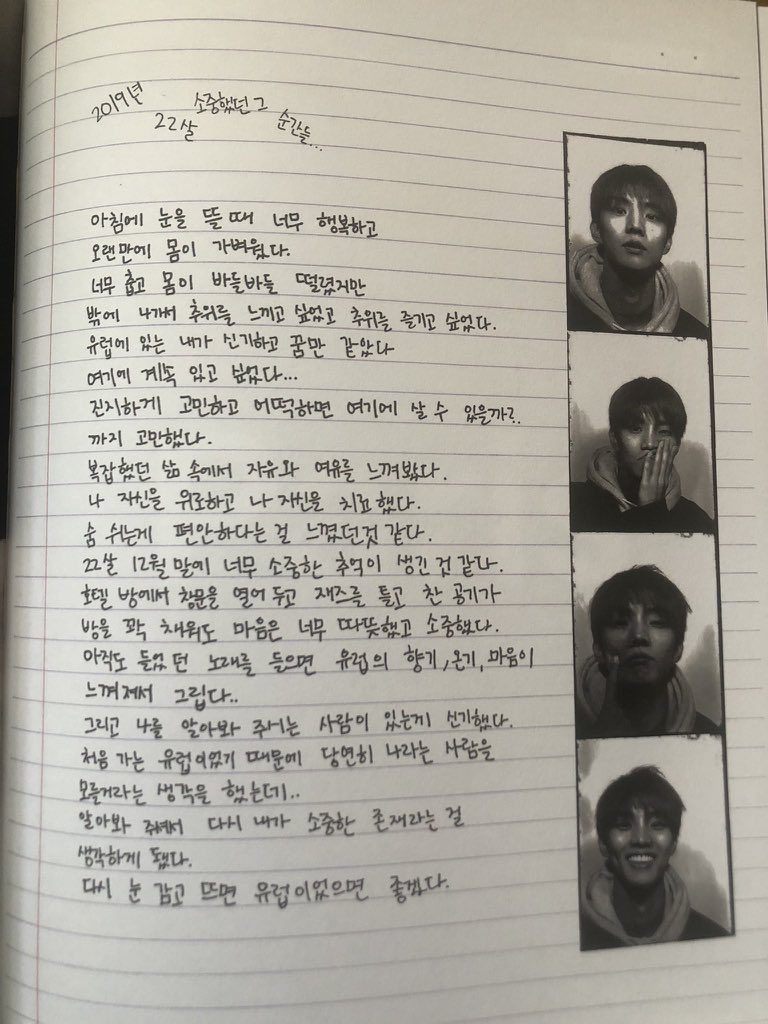 2019년
22살
소중했던 그
순간들...
아침에 눈을 뜰 때 너무 행복하고
오랜만에 몸이 가벼웠다.
너무 춥고 몸이 바들바들 떨렸지만
밖에 나가서 추위를 느끼고 싶었고 추위를 즐기고 싶었다.
유럽에 있는 내가 신기하고 꿈만 같았다
여기에 계속 있고 싶었다...
진지하게 고민하고 어떡하면 여기에 살 수 있을까?..
까지 고민했다.
복잡했던 삶 속에서 자유와 여유를 느껴봤다.
나 자신을 위로하고 나 자신을 치료했다.
숨 쉬는게 편안하다는 걸 느꼈던것 같다.
22살 12월 말에 너무 소중한 추억이 생긴 것 같다.
호텔 방에서 창문을 열어 두고 재즈를 틀고 찬 공기가
방을 꽉 채워도 마음은 너무 따뜻했고 소중했다.
아직도 들었던 노래를 들으면 유럽의 향기, 온기, 마음이
느껴져서 그립다..
그리고 나를 알아봐 주시는 사람이 있는게 신기했다.
처음 가는 유럽이었기 때문에 당연히 나라는 사람을
모를거라는 생각을 했는데..
알아봐 주셔서 다시 내가 소중한 존재라는 걸
생각하게 됐다.
다시 눈 감고 뜨면 유럽이었으면 좋겠다.